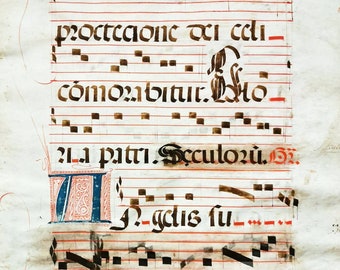 proteccione dei celi
cōmorabitur. Glo
ria patri. Seculorū.
ANgelis su